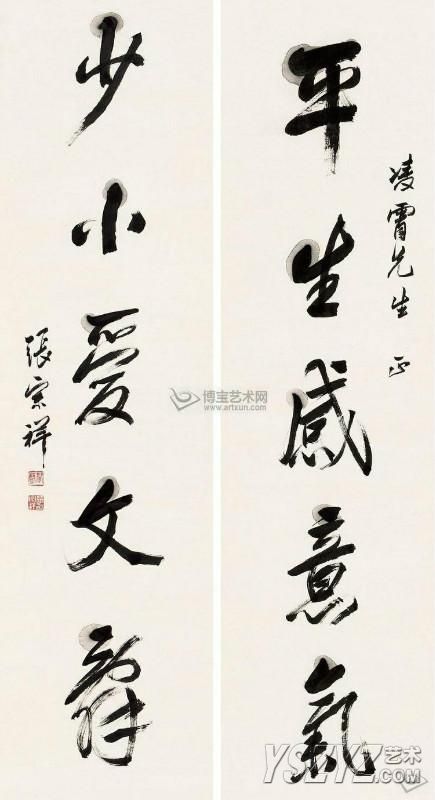 凌霄先生 正
平生感意氣
少小愛文辭
張宗祥
博宝艺术网
www.artxun.com
YSZYZ艺术